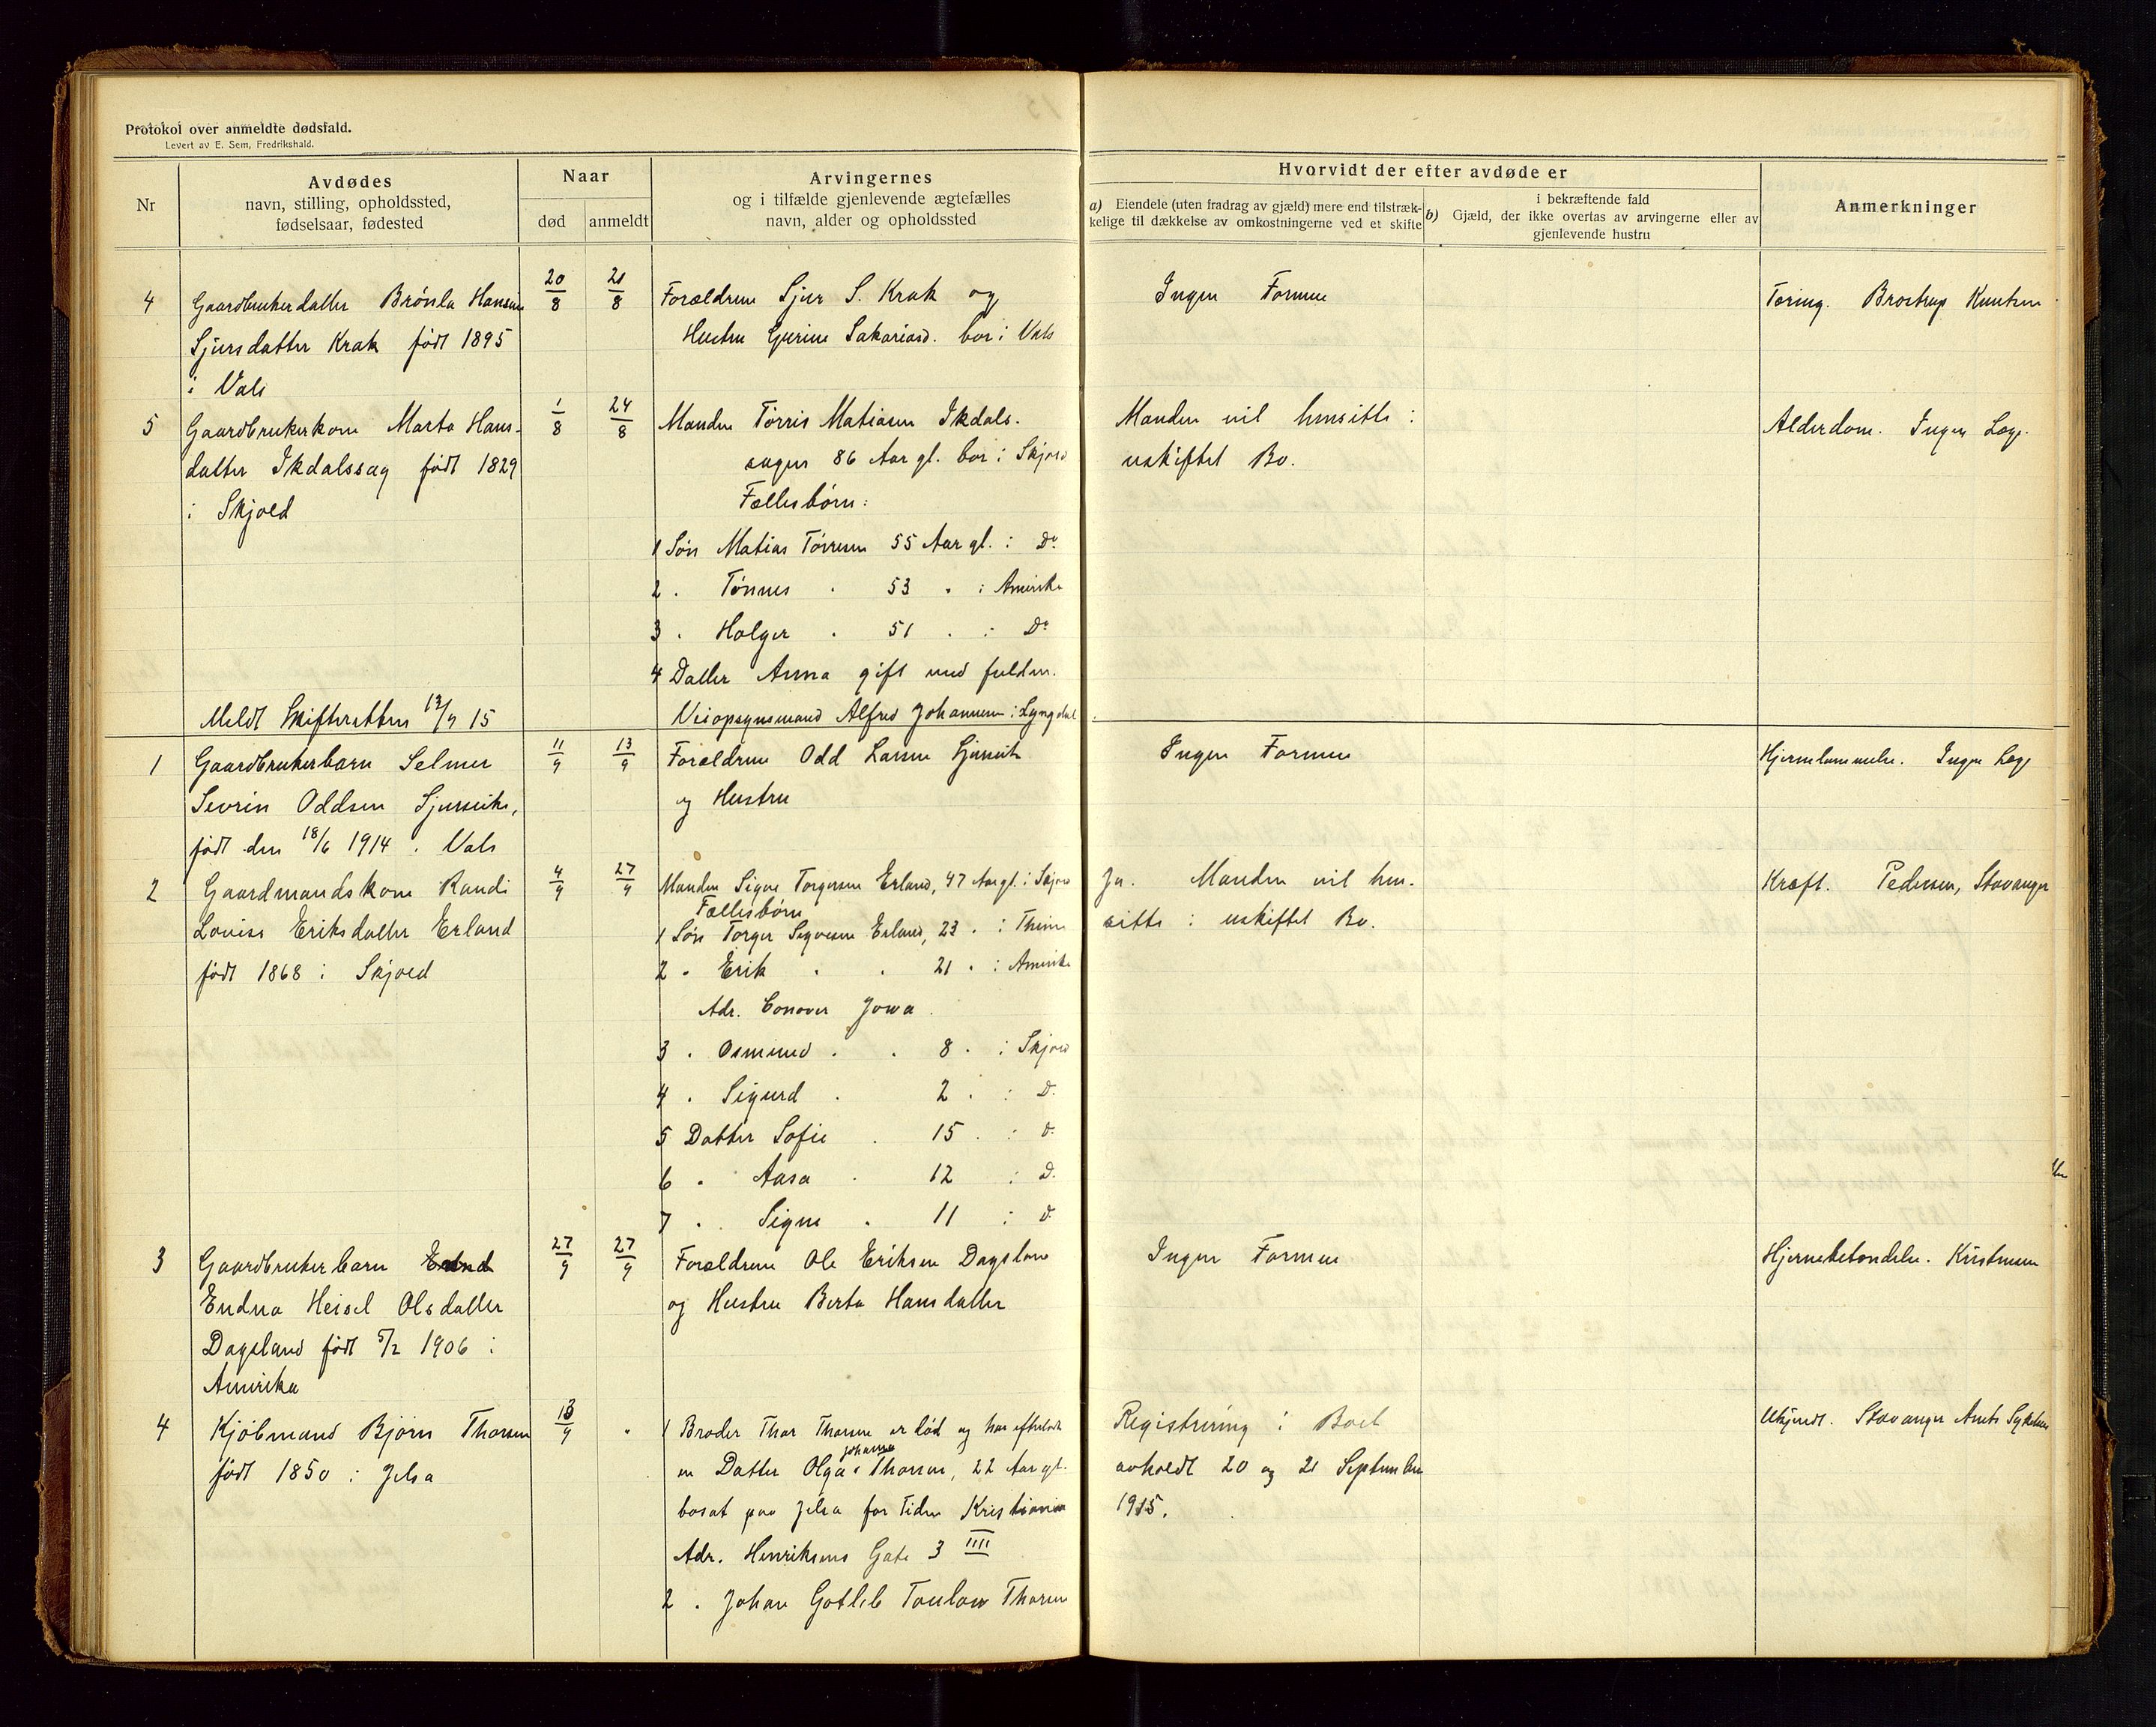 Protokol over anmeldte dødsfald.
Levert av E. Sem, Fredrikshald.
Nr
Avdødes
navn, stilling, opholdssted,
fødselsaar, fødested
Naar
død
anmeldt
Arvingernes
og i tilfælde gjenlevende ægtefælles
navn, alder og opholdssted
Hvorvidt der efter avdøde er
a) Eiendele (uten fradrag av gjæld) mere end tilstræk-
kelige til dækkelse av omkostningerne ved et skifte
i bekræftende fald
b) Gjæld, der ikke overtas av arvingerne eller av
gjenlevende hustru
Anmerkninger
4
Gaardbrukerdatter Brønla Hansine
Sjursdatter Krak født 1895
i Vats
20/8
21/8
Forældrene Sjur S. Krak og
Hustru Gurine Sakariasd. bor i Vats
Ingen Formue
Tæring. Brostrup Knutsen
5
Gaardbrukerkone Marta Hans-
datter Ikdalssag født 1829
i Skjold
1/8
24/8
Manden Tørris Matiasen Ikdals-
sagen 86 Aar gl. bor i Skjold
Fællesbørn:
1 Søn Matias Tørresen 55 Aar gl. i Do
2 " Tønnes " 53 " i Amerika
3 " Holger " 51 " i Do
4 Datter Anna gift med fuldm.
Veiopsynsmand Alfred Johannesen i Lyngdal
Manden vil hensitte i
uskiftet Bo.
Alderdom. Ingen Læge.
Meldt Skifteretten 13/9 15
1
Gaardbrukerbarn Selmer
Sevrin Oddsen Sjursvike,
født den 18/6 1914 i Vats
11/9
13/9
Forældrene Odd Larsen Sjursvik
og Hustru
Ingen Formue
Hjernelammelse. Ingen Læge
2
Gaardmandskone Randi
Lovise Eriksdatter Erland
født 1868 i Skjold
4/9
27/9
Manden Sigve Torgersen Erland, 47 Aar gl. i Skjold
Fællesbørn
1 Søn Torger Sigvesen Erland, 23 " i Thime
2 " Erik " " 21 " i Amerika
Adr. Conover Jowa
3 " Osmund " " 8 " i Skjold
4 " Sigurd " 2 " i D.
5 Datter Sofie " 15 " i D.
6 " Aasa " 12 i D.
7 " Signe " 11 i D.
Ja. Manden vil hen-
sitte i uskiftet Bo.
Kræft. Pedersen, Stavanger
3
Gaardbrukerbarn
Endna Heisel Olsdatter
Dagsland født 5/2 1906 i
Amerika
27/9
27/9
Forældrene Ole Eriksen Dagsland
og Hustru Berta Hansdatter
Ingen Formue
Hjernebetændelse. Kristensen
4
Kjøbmand Bjørn Thorsen
født 1850 i Jelsa
13/9
"
1 Broder Thor Thorsen er død og har efterladt
en Datter Olga Johanna Thorsen, 22 Aar gl.
bosat paa Jelsa for Tiden Kristiania
Adr. Henriksens Gate 3 IIII
2 " Johan Gotleb Toulow Thorsen
Registrering i Boet
avholdt 20 og 21 September
1915.
Ukjendt. Stavanger Amts Sykehus